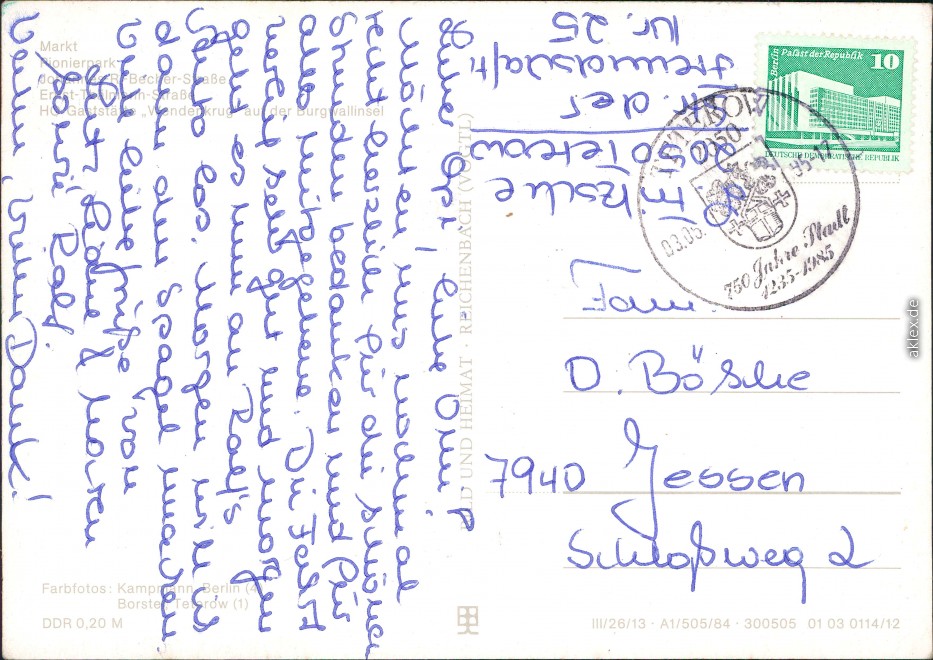 Markt
Pionierpark
Johannes-R.-Becher-Straße
Ernst-Thälmann-Straße
HO-Gaststätte „Wendenkrug“ auf der Burgwallinsel
Liebe Opi, liebe Omi!
Möchten uns nochmal
recht herzlich für die schönen
Stunden bedanken und für
alles mitgegebene. Die Fahrt
verlief sehr gut und morgen
geht es nun an Ralf's
Dann am Spargel machen
Viele liebe Grüße von
Eurer & Maren
sowie Ralf.
Vielen, vielen Dank!
BILD UND HEIMAT · REICHENBACH (VOGTL)
Farbfotos: Kampmann, Berlin (4)
Borster, Teterow (1)
DDR 0,20 M
E. Köske
Teterow
Str. der
Freundschaft
Nr. 25
Berlin Palast der Republik
10
DEUTSCHE DEMOKRATISCHE REPUBLIK
TETEROW
2050
03.05.85-17
750 Jahre Stadt
1235-1985
Fam.
O. Böske
7940 Jessen
Schloßweg 2
III/26/13 · A1/505/84 · 300505 01 03 0114/12
aklex.de